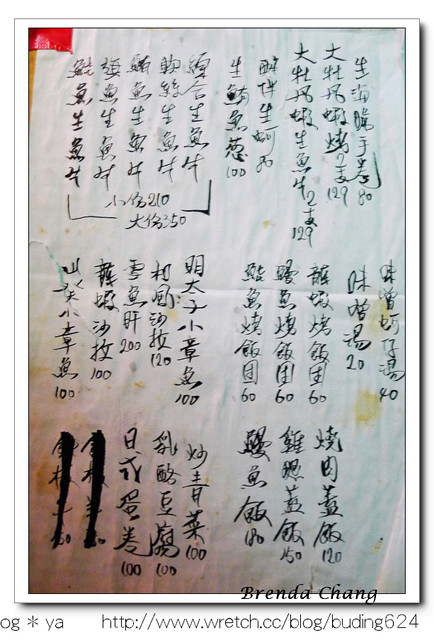 生海膽手卷80
大牡丹蝦烤2支129
大牡丹蝦生魚片2支129
醋拌生蚵80
生鮪魚蔥100
綜合生魚片
鮭魚生魚片
旗魚生魚片
魷魚生魚片
小份210
大份350
味噌蚵仔湯40
味噌湯20
龍蝦烤飯団60
鰻魚燒飯団60
鮭魚燒飯団60
明太子小章魚100
和風沙拉120
雪魚肝200
龍蝦沙拉100
山葵小章魚100
燒肉蓋飯120
雞腿蓋飯150
鰻魚飯180
炒青菜100
乳酪豆腐100
日式蛋卷100
Brenda Chang
og * ya http://www.wretch.cc/blog/buding624